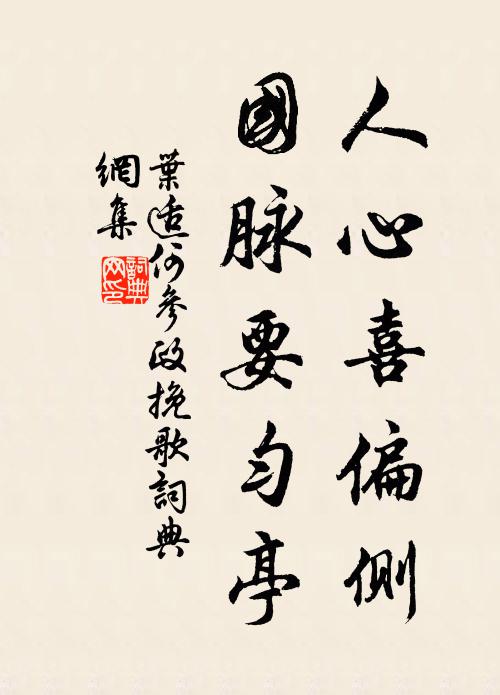 人心喜偏側
國脉要匀亭
葉适何參政挽歌詞典
網集
詞典網印